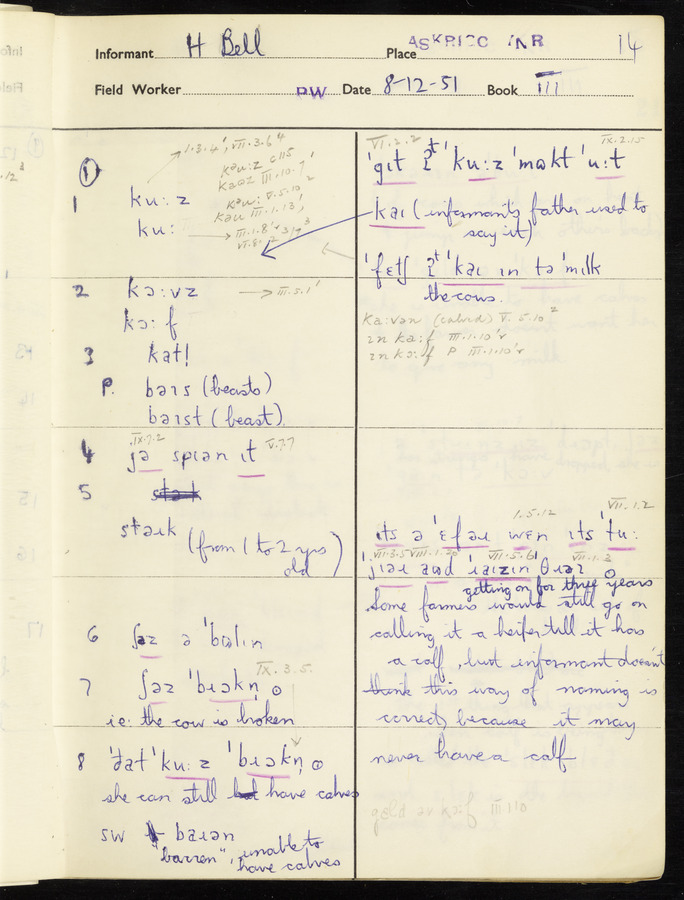 Informant H Bell Place ASKRIGG NR 14
Field Worker PW Date 8-12-51 Book III
①
1.3.4', VII.3.6⁴
kəu:z
III.10.7'
kəu: V.5.10²
kəu III.1.13'
1 ku:z
ku: → III.1.8'
2 kɔ:vz → III.5.1'
kɔ:f
3 kat!
P. bəɪs (beasts)
bəɪst (beast)
IX.7.2
4 jə spɪən ɪt V.7.7
5
stəɪk (from 1 to 2 yrs old)
6 ʃəz ə 'bʊlɪn
IX.3.5.
7 ʃəz 'bɪɔkn̩ ʘ
ie: the cow is broken
8 'ðat 'ku:z 'bɪɔkn̩ ʘ
she can still have calves
SW baɪən
"barren", unable to
have calves
VI.2.2 IX.2.15
'gɪt ʔt 'ku:z 'mʊkt 'u:t
kaɪ (informant's father used to
say it)
'fɛtʃ ʔt 'kaɪ ɪn tə 'mɪlk
the cows.
ka:vən (calved) V.5.10²
ɪn ka:f III.1.10'r
ɪn kɔ:f P III.1.10'r
1.5.12 VII.1.2
ɪts ə 'ɛfəɪ wɛn ɪts 'tu:
VII.3.5 VII.5.6' VII.1.3
'jɪəɪ aʊd 'ɪaɪzɪn θɪəɪ ʘ
getting on for three years
Some farmers would still go on
calling it a heifer till it has
a calf, but informant doesn't
think this way of naming is
correct, because it may
never have a calf
geld əv kɔ:f III.1.10